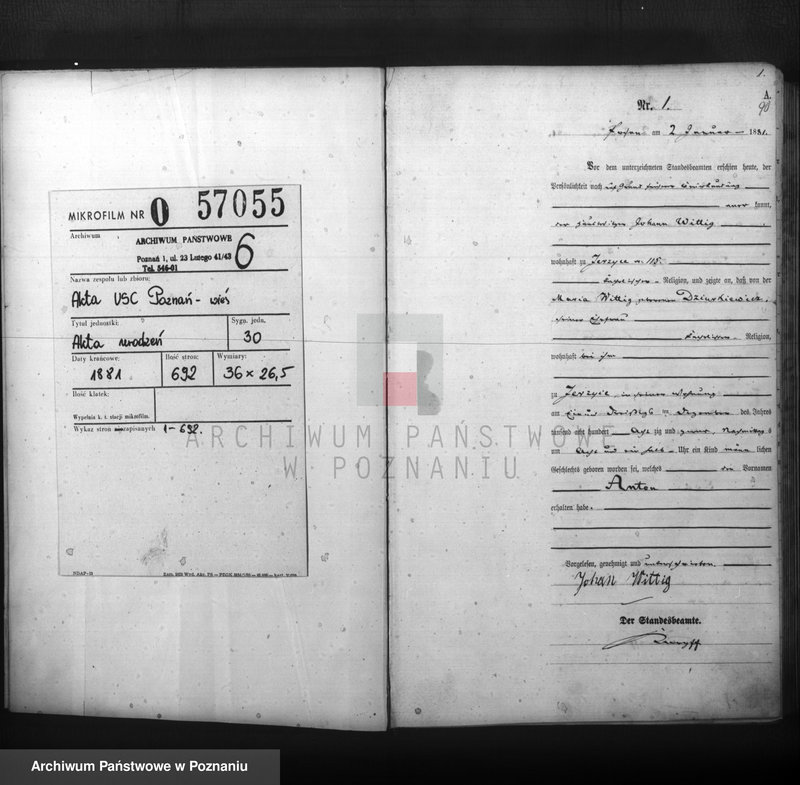 MIKROFILM NR 0 57055
Archiwum
ARCHIWUM PAŃSTWOWE
Poznań 1, ul. 23 Lutego 41/43
Tel. 546-01
6
Nazwa zespołu lub zbioru:
Akta USC Poznań - wieś
Tytuł jednostki:
Akta urodzeń
Sygn. jedn.
30
Daty krańcowe:
1881
Ilość stron:
692
Wymiary:
36 x 26,5
Ilość klatek:
Wypełnia k. t. stacji mikrofilm.
Wykaz stron zapisanych 1-692.
NDAP-13
1.
A.
Nr. 1.
Posen am 2 Januar 1881.
Vor dem unterzeichneten Standesbeamten erschien heute, der
Persönlichkeit nach
kannt,
der Johann Wittig
wohnhaft zu Jerzyce n. 115.
katholischer Religion, und zeigte an, daß von der
Maria Wittig geborenen
seiner Ehefrau
katholischer Religion,
wohnhaft bei ihm
zu Jerzyce, in seiner Wohnung
am Ein und dreißigsten Dezember des Jahres
tausend acht hundert acht zig und Nachmittags
um acht und ein halb Uhr ein Kind männlichen
Geschlechts geboren worden sei, welches die Vornamen
Anton
erhalten habe.
Vorgelesen, genehmigt und unterschrieben.
Johan Wittig
Der Standesbeamte.
ARCHIWUM PAŃSTWOWE
W POZNANIU
Archiwum Państwowe w Poznaniu